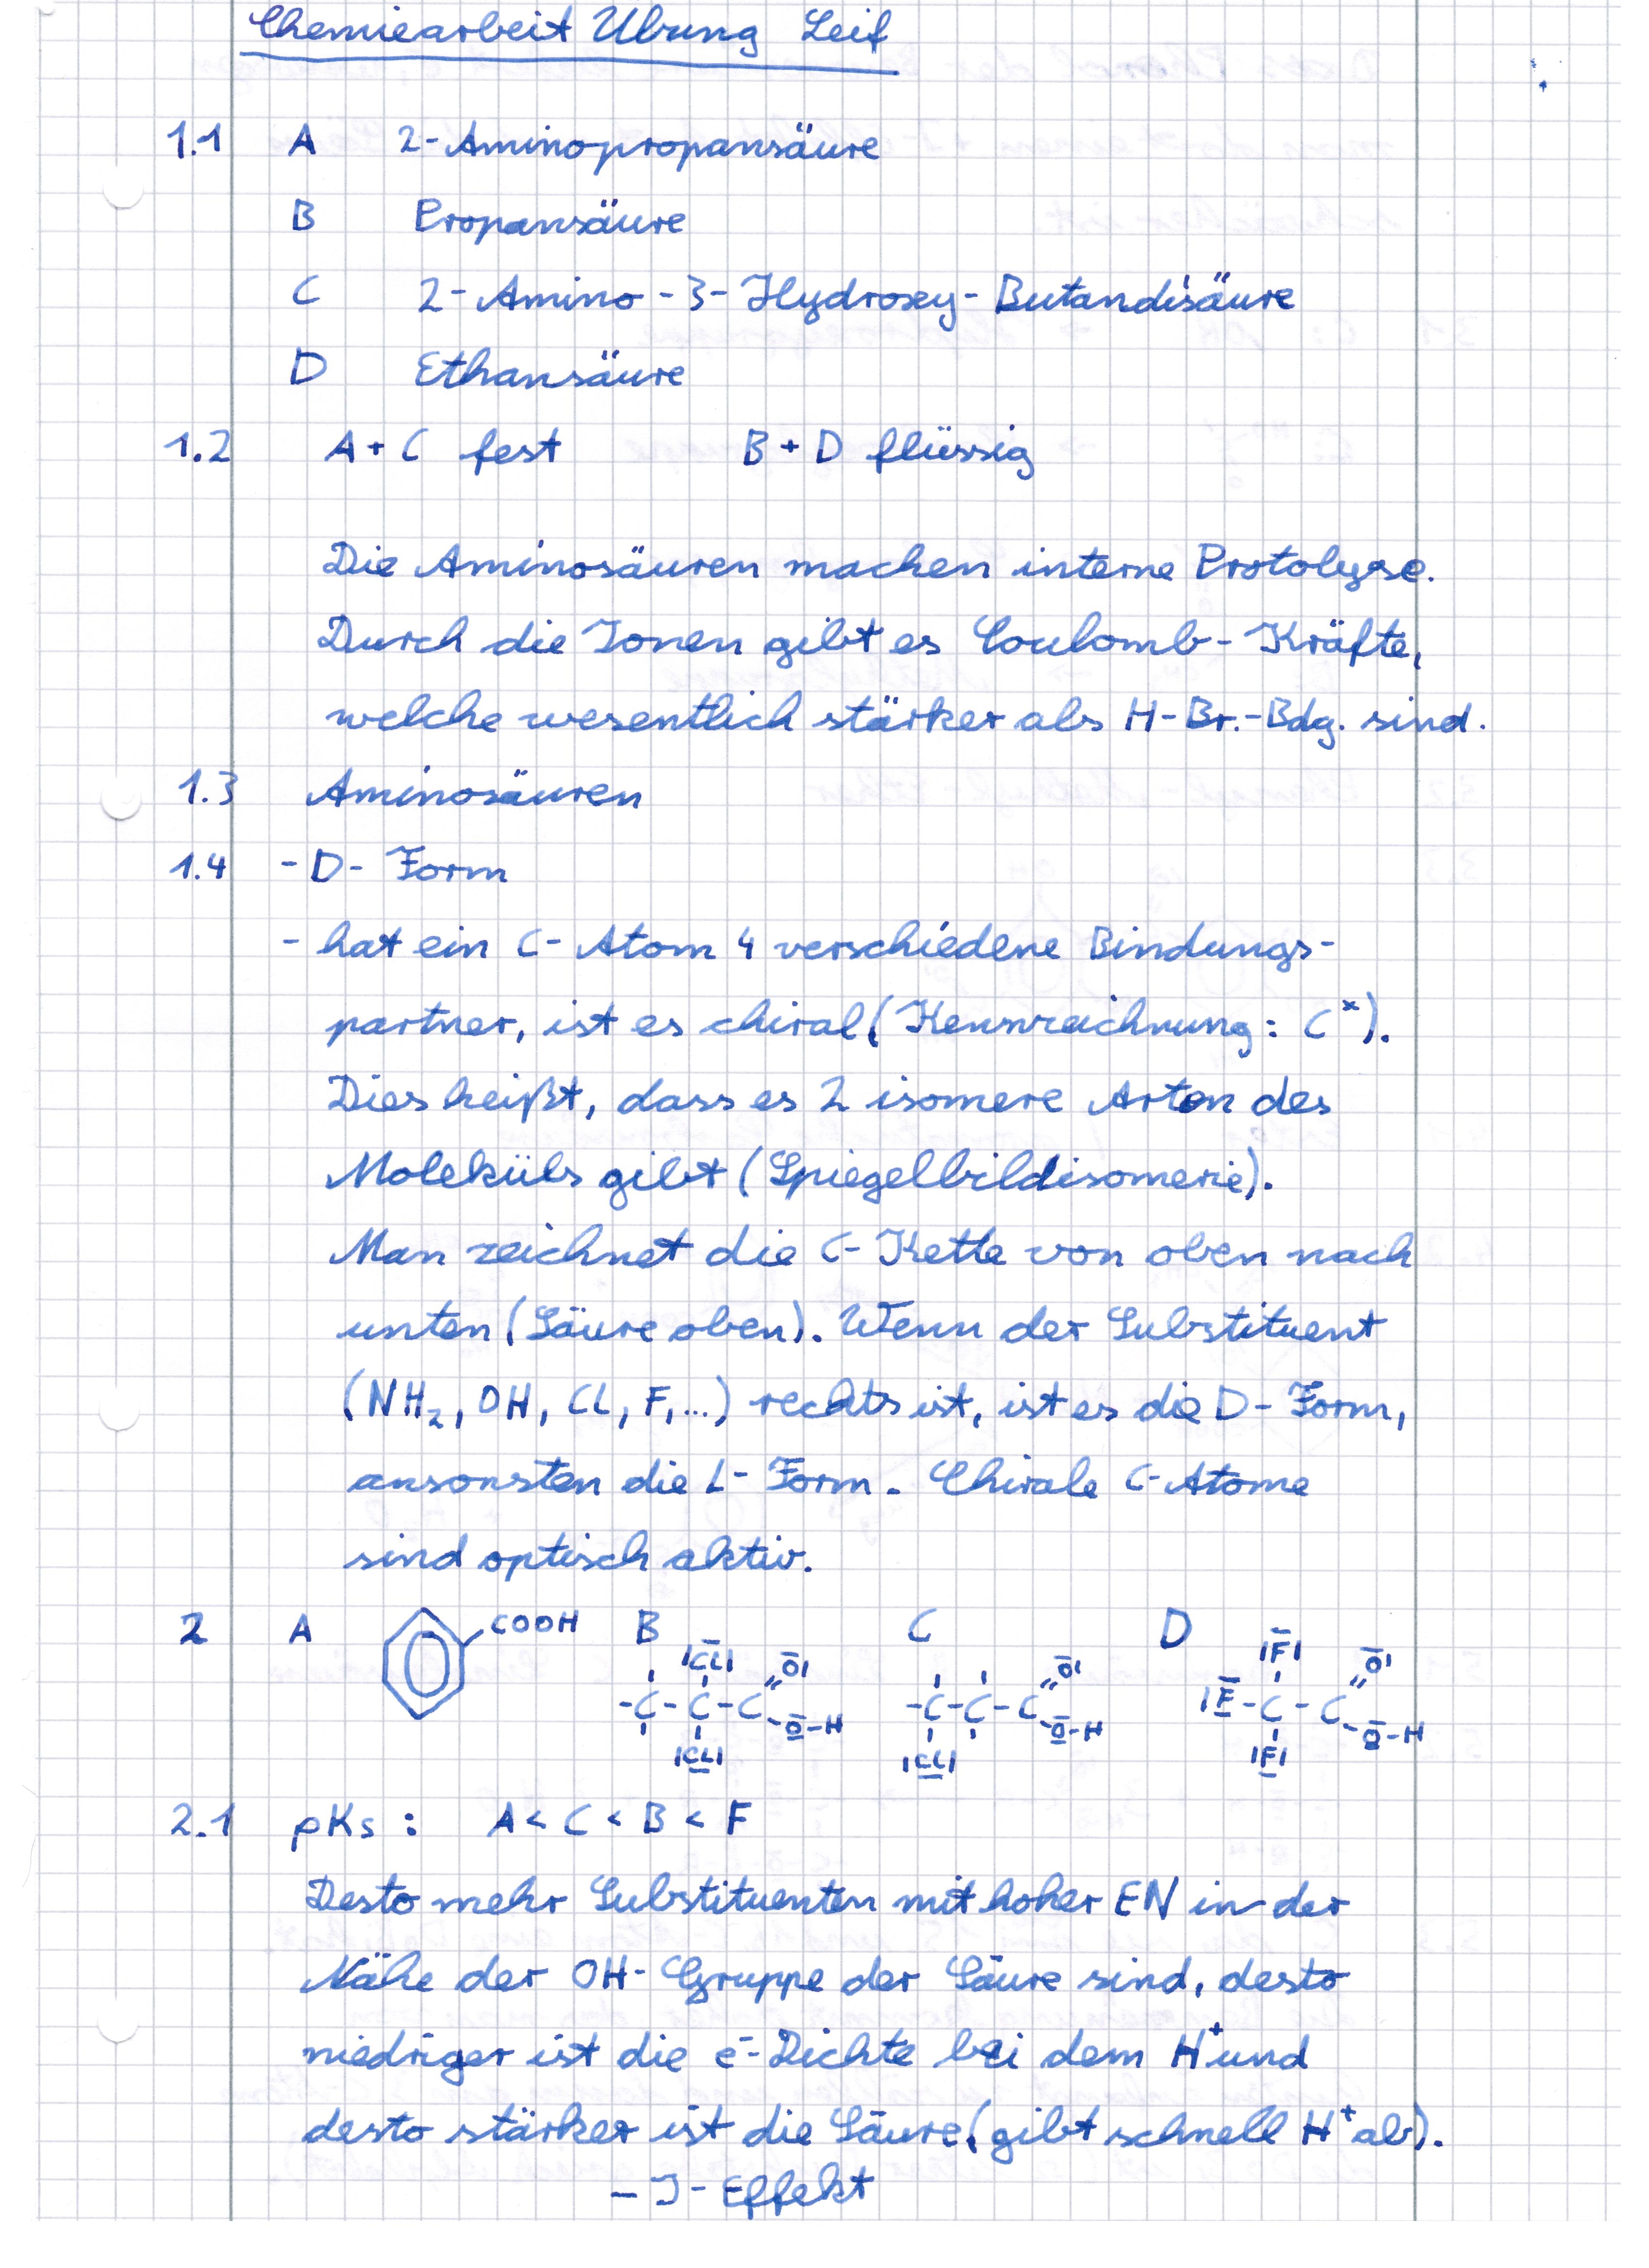 Chemiearbeit Übung Leif
1.1 A 2-Aminopropansäure
B Propansäure
C 2-Amino-3-Hydroxy-Butandisäure
D Ethansäure
1.2 A + C fest B + D flüssig
Die Aminosäuren machen interne Protolyse.
Durch die Ionen gibt es Coulomb-Kräfte,
welche wesentlich stärker als H-Br.-Bdg. sind.
1.3 Aminosäuren
1.4 - D-Form
- hat ein C-Atom 4 verschiedene Bindungs-
partner, ist es chiral (Kennzeichnung: C*).
Dies heißt, dass es 2 isomere Arten des
Moleküls gibt (Spiegelbildisomerie).
Man zeichnet die C-Kette von oben nach
unten (Säure oben). Wenn der Substituent
(NH₂, OH, Cl, F,...) rechts ist, ist es die D-Form,
ansonsten die L-Form. Chirale C-Atome
sind optisch aktiv.
2 A COOH B C D
|Cl| O| O| |F| O|
-C-C-C -C-C-C |F-C-C
O-H O-H O-H
|Cl| |Cl| |F|
2.1 pKs: A < C < B < F
Desto mehr Substituenten mit hoher EN in der
Nähe der OH-Gruppe der Säure sind, desto
niedriger ist die e⁻-Dichte bei dem H⁺ und
desto stärker ist die Säure (gibt schnell H⁺ ab).
- I-Effekt